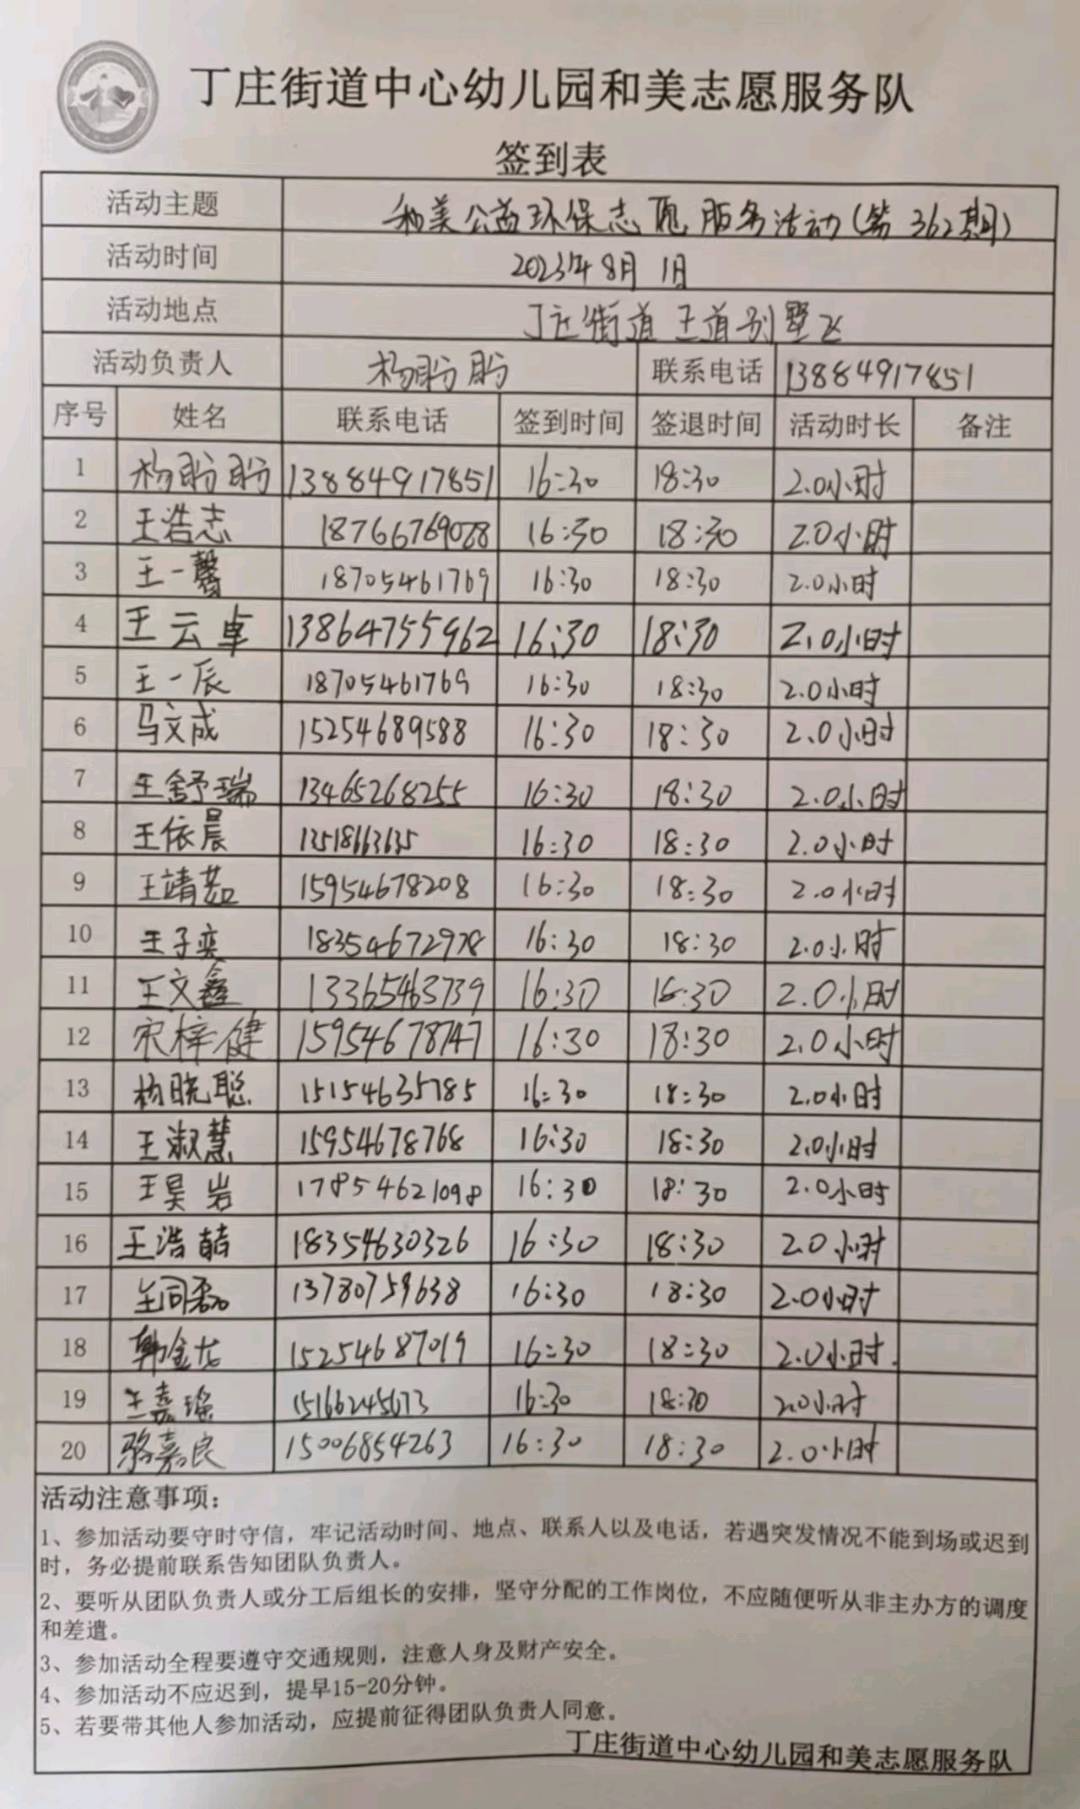 丁庄街道中心幼儿园和美志愿服务队
签到表
活动主题 和美公益环保志愿服务活动(第362期)
活动时间 2023年8月1日
活动地点 丁庄街道王道别墅区
活动负责人 杨盼盼 联系电话 13884917851
序号 姓名 联系电话 签到时间 签退时间 活动时长 备注
1 杨盼盼 13884917851 16:30 18:30 2.0小时
2 王浩志 18766769088 16:30 18:30 2.0小时
3 王一馨 18705461769 16:30 18:30 2.0小时
4 王云卓 13864755962 16:30 18:30 2.0小时
5 王一辰 18705461769 16:30 18:30 2.0小时
6 马文成 15254689588 16:30 18:30 2.0小时
7 王舒瑞 13465268255 16:30 18:30 2.0小时
8 王依晨 13518663635 16:30 18:30 2.0小时
9 王靖茹 15954678208 16:30 18:30 2.0小时
10 王子奕 18354672978 16:30 18:30 2.0小时
11 王文鑫 13365463739 16:30 18:30 2.0小时
12 宋梓健 15954678747 16:30 18:30 2.0小时
13 杨晓聪 15154635785 16:30 18:30 2.0小时
14 王淑慧 15954678768 16:30 18:30 2.0小时
15 王昊岩 17854621098 16:30 18:30 2.0小时
16 王浩喆 18354630326 16:30 18:30 2.0小时
17 王同磊 13780759638 16:30 18:30 2.0小时
18 韩金龙 15254687019 16:30 18:30 2.0小时.
19 王嘉瑶 15166245673 16:30 18:30 2.0小时
20 骆嘉良 15006854263 16:30 18:30 2.0小时
活动注意事项:
1、参加活动要守时守信，牢记活动时间、地点、联系人以及电话，若遇突发情况不能到场或迟到
时，务必提前联系告知团队负责人。
2、要听从团队负责人或分工后组长的安排，坚守分配的工作岗位，不应随便听从非主办方的调度
和差遣。
3、参加活动全程要遵守交通规则，注意人身及财产安全。
4、参加活动不应迟到，提早15-20分钟。
5、若要带其他人参加活动，应提前征得团队负责人同意。
丁庄街道中心幼儿园和美志愿服务队